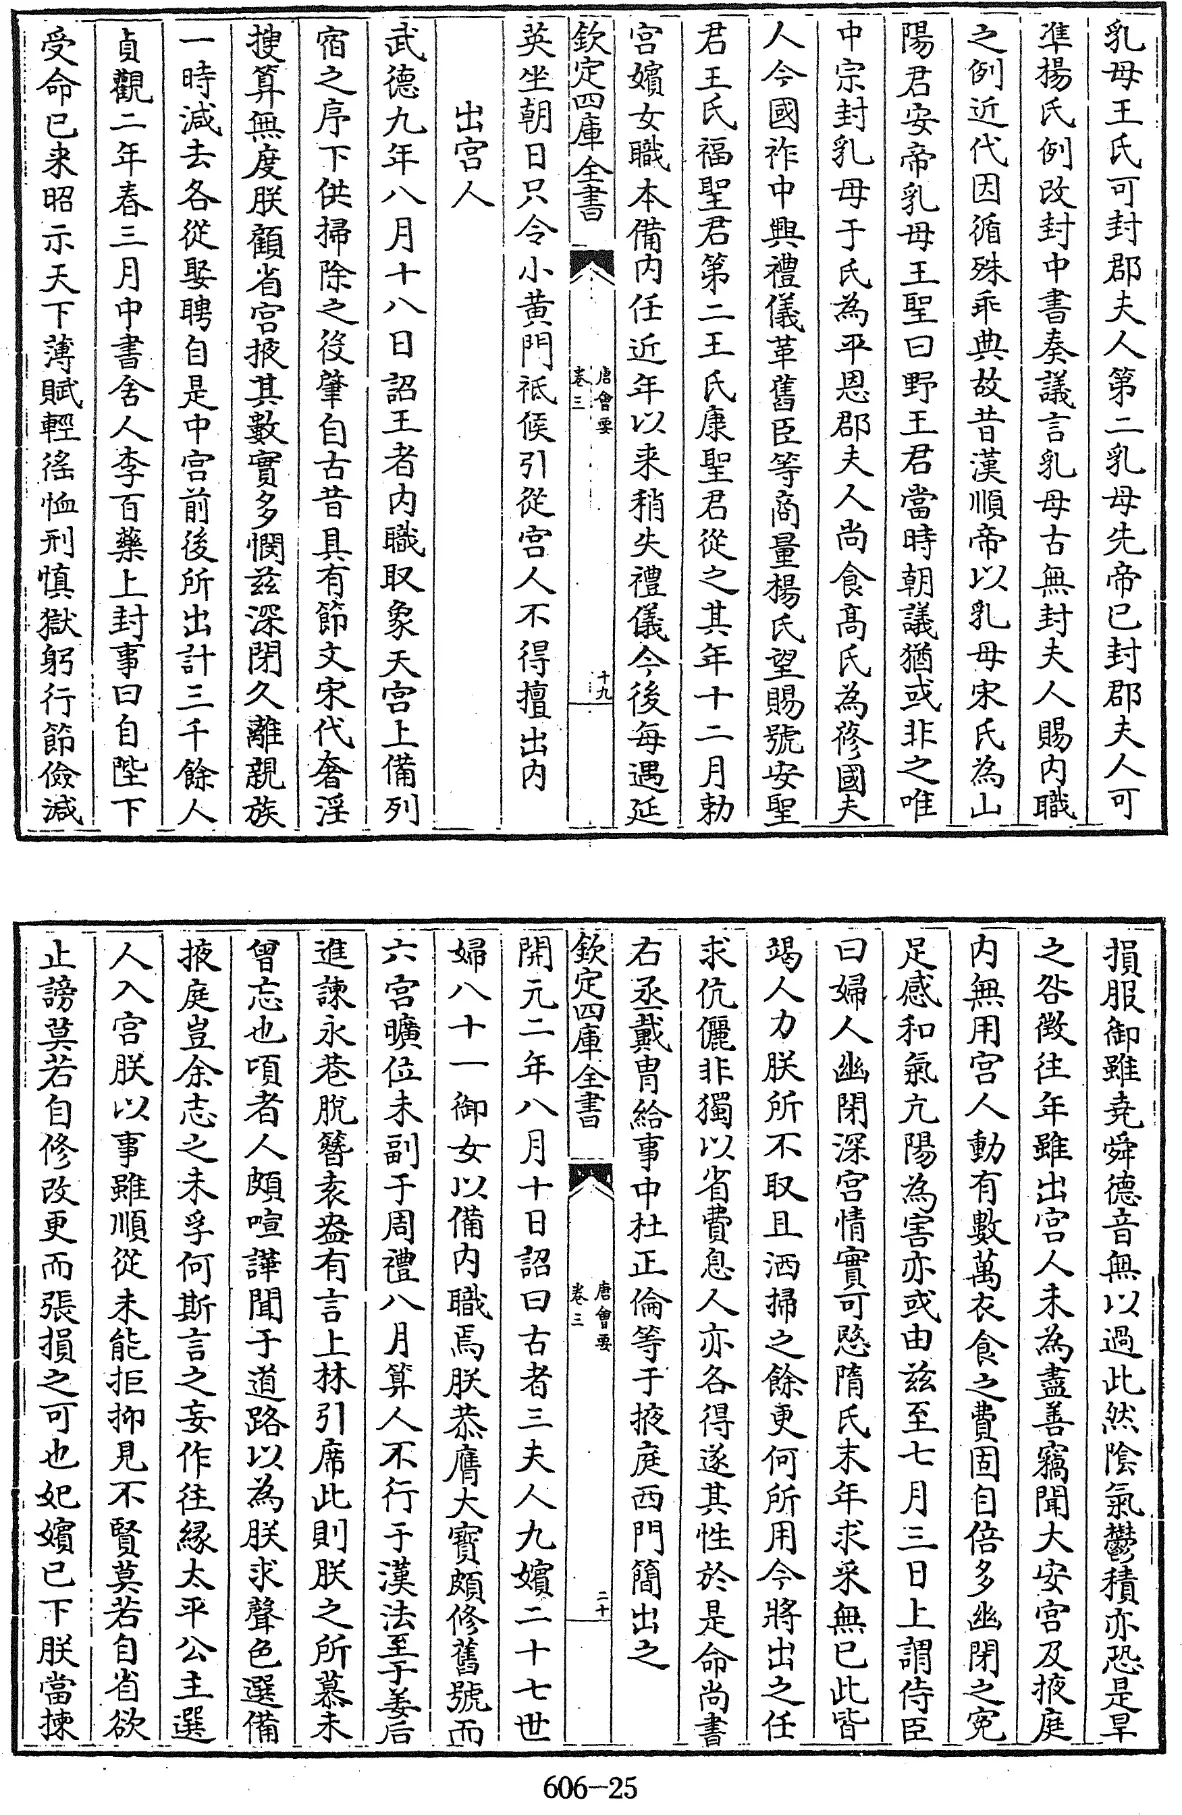 乳母王氏可封郡夫人第二乳母先帝已封郡夫人可
準楊氏例改封中書奏議言乳母古無封夫人賜内職
之例近代因循殊乖典故昔漢順帝以乳母宋氏為山
陽君安帝乳母王聖曰野王君當時朝議猶或非之唯
中宗封乳母于氏為平恩郡夫人尚食髙氏為蓚國夫
人今國祚中興禮儀革舊臣等商量楊氏望賜號安聖
君王氏福聖君第二王氏康聖君從之其年十二月勅
宫嬪女職本備内任近年以来稍失禮儀今後每遇延
欽定四庫全書
唐會要
卷三
十九
英坐朝日只令小黄門祗候引從宫人不得擅出内
出宫人
武德九年八月十八日詔王者内職取象天宫上備列
宿之序下供掃除之役肇自古昔具有節文宋代奢淫
搜算無度朕顧省宫掖其數實多憫兹深閉久離親族
一時減去各從娶聘自是中宫前後所出計三千餘人
貞觀二年春三月中書舍人李百藥上封事曰自陛下
受命已来昭示天下薄賦輕徭恤刑慎獄躬行節儉減
損服御雖堯舜德音無以過此然陰氣鬱積亦恐是旱
之咎徴往年雖出宫人未為盡善竊聞大安宫及掖庭
内無用宫人動有數萬衣食之費固自倍多幽閉之寃
足感和氣亢陽為害亦或由兹至七月三日上謂侍臣
曰婦人幽閉深宫情實可愍隋氏末年求采無已此皆
竭人力朕所不取且洒掃之餘更何所用今將出之任
求伉儷非獨以省費息人亦各得遂其性於是命尚書
右丞戴胄給事中杜正倫等于掖庭西門簡出之
欽定四庫全書
唐會要
卷三
二十
開元二年八月十日詔曰古者三夫人九嬪二十七世
婦八十一御女以備内職焉朕恭膺大寳頗修舊號而
六宫曠位未副于周禮八月算人不行于漢法至于姜后
進諫永巷脱簪袁盎有言上林引席此則朕之所慕未
曾忘也頃者人頗喧譁聞于道路以為朕求聲色選備
掖庭豈余志之未孚何斯言之妄作往縁太平公主選
人入宫朕以事雖順從未能拒抑見不賢莫若自省欲
止謗莫若自修改更而張損之可也妃嬪已下朕當揀
606-25